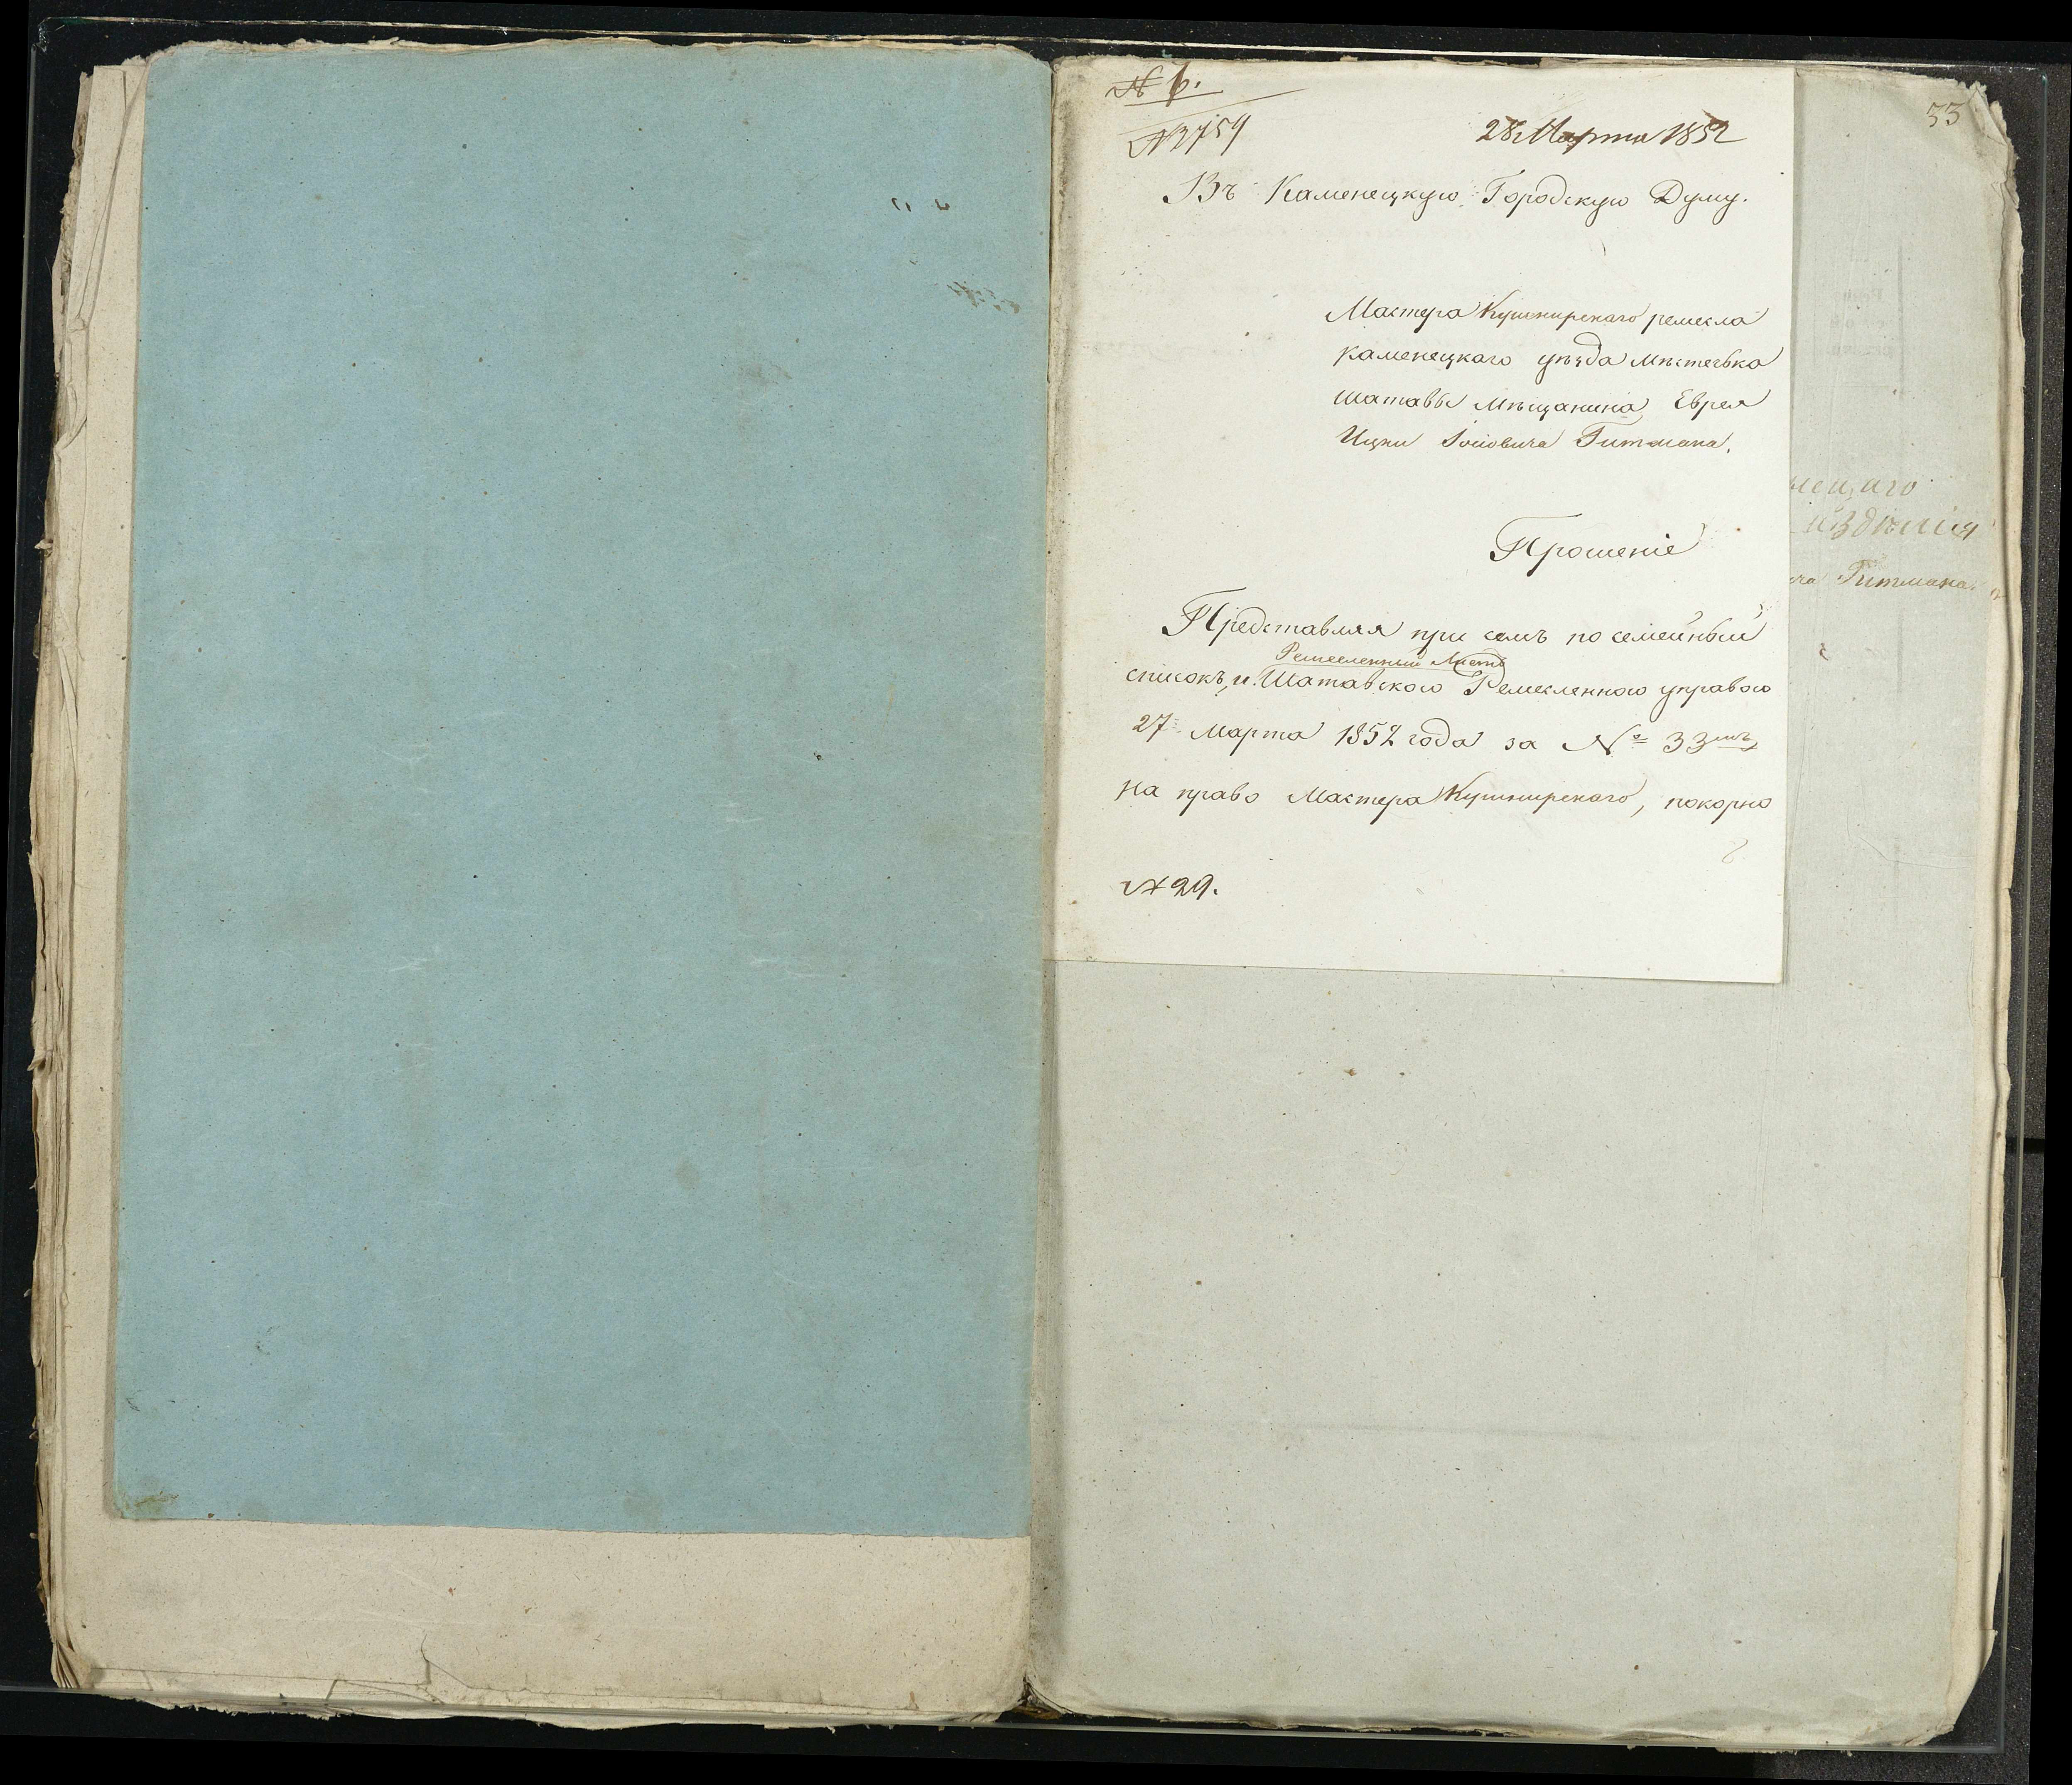 № 6.
33
№ 3759
28 Марта 1852
Въ Каменецкую Городскую Думу.
Мастера Кушнирскаго ремесла
Каменецкаго уѣзда мѣстечька
Шатавы мѣщанина, Еврея
Ицки Гитмана.
Прошеніе
Представляя при семъ посемейный
Ремесленный Листъ
списокъ, и Шатавского Ремесленного управою
27 Марта 1852 года за № 33мъ
на право Мастера Кушнирскаго, покорно
№ 29.
издѣлія
Гитмана.